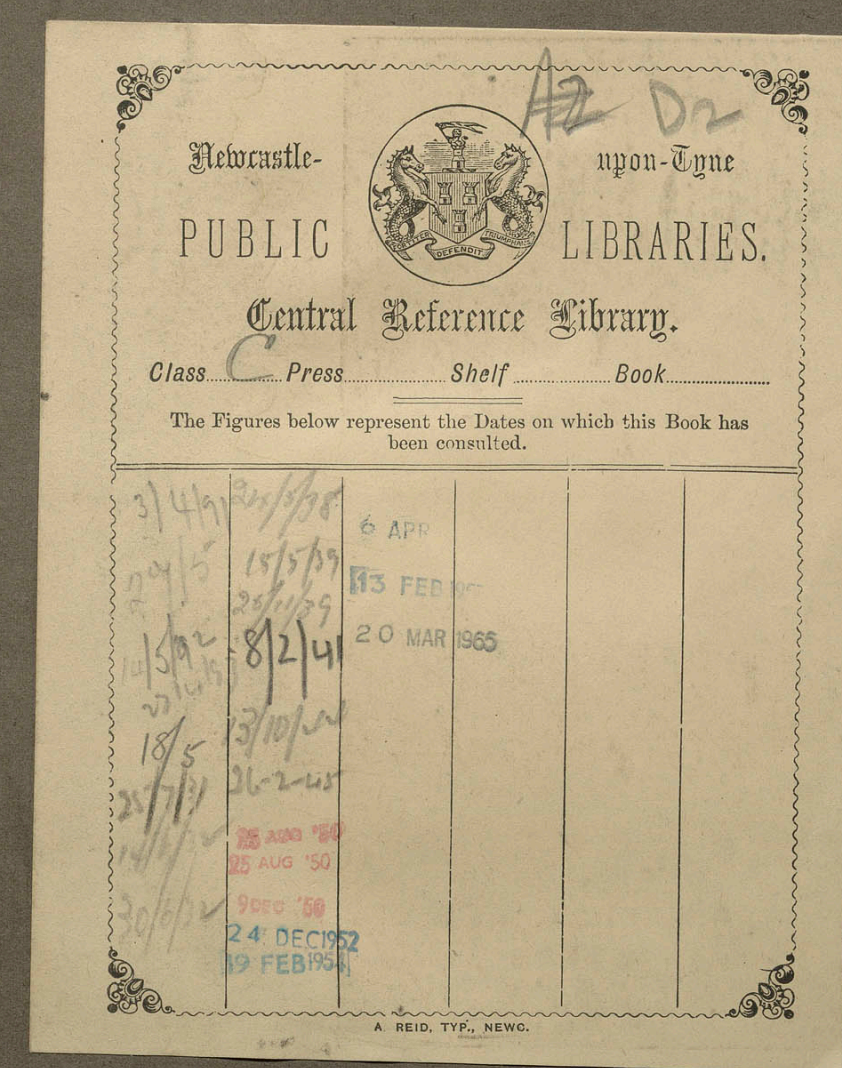 A2 D2
Newcastle- upon-Tyne
PUBLIC LIBRARIES.
FORTITER DEFENDIT TRIUMPHANS
Central Reference Library.
Class....C....Press.................... Shelf.................... Book....................
The Figures below represent the Dates on which this Book has
been consulted.
3/4/91
14/5/92
18/5
25/7/31
30/6/32
15/5/39
25/11/39
8/2/41
26-2-45
25 AUG '50
25 AUG '50
9 DEC '50
24 DEC 1952
19 FEB 1954
6 APR
13 FEB
20 MAR 1965
A. REID, TYP., NEWC.